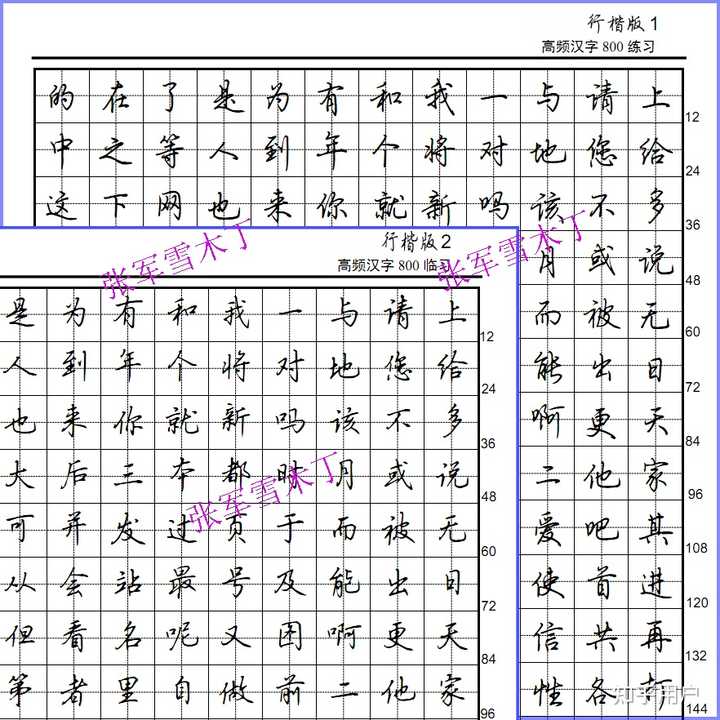 行楷版1
高频汉字800练习
的在了是为有和我一与请上
12
中之等人到年个将对地您给
24
这下网也来你就新吗该不多
36
张军雪木丁
张军雪木丁
月或说
48
而被无
60
能出日
72
啊更天
84
二他家
96
爱吧其
108
使首进
120
信共再
132
性各
144
行楷版2
高频汉字800临习
是为有和我一与请上
12
人到年个将对地您给
24
也来你就新吗该不多
36
大后三本都时月或说
48
张军雪木丁
可并发过页于而被无
60
从会站最号及能出日
72
但看名呢又因啊更天
84
第者里自做前二他家
96
知乎用户